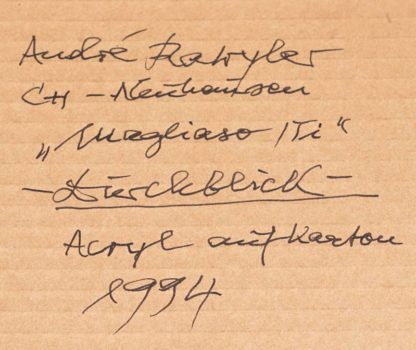 André Rawyler
CH - Neuhausen
„Magliaso /Ti“
- Durchblick -
Acryl auf Karton
1994